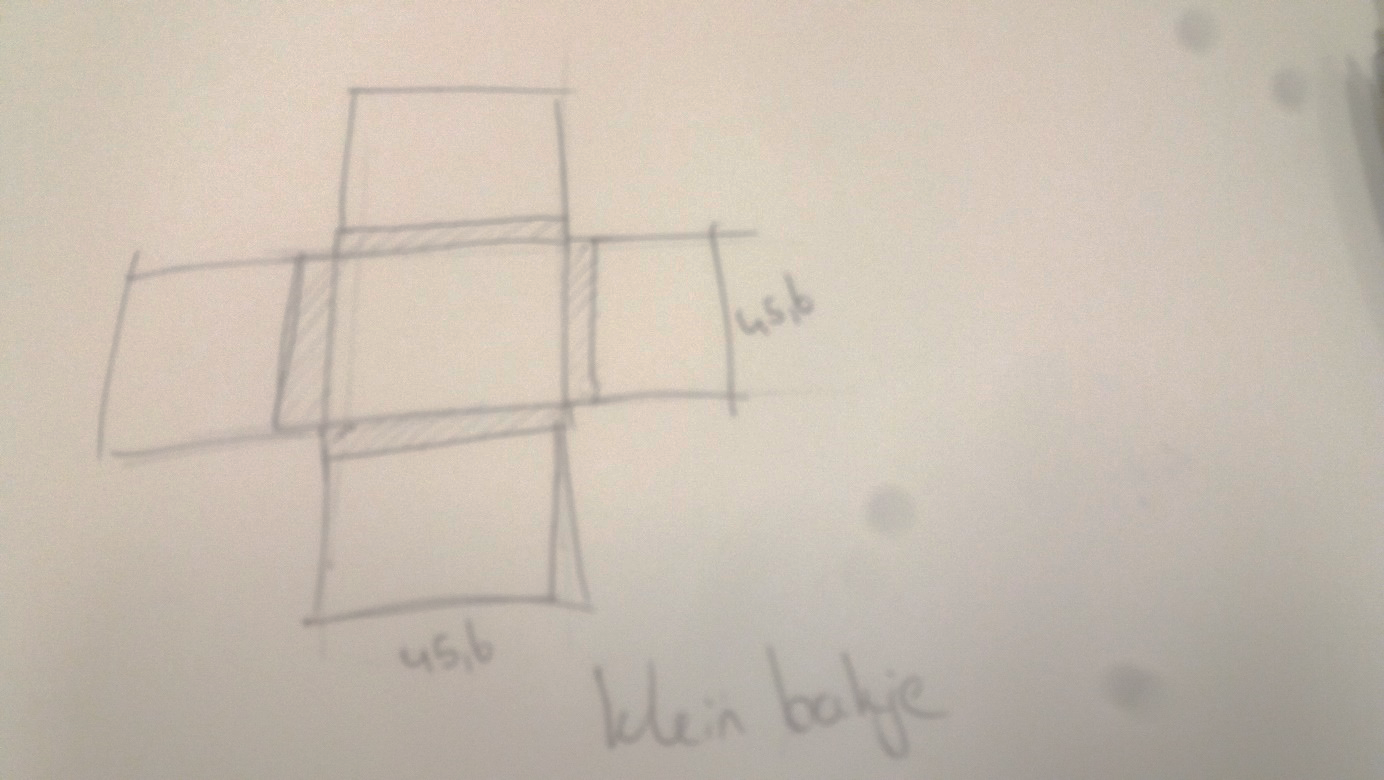 45,6
45,6
klein bakje